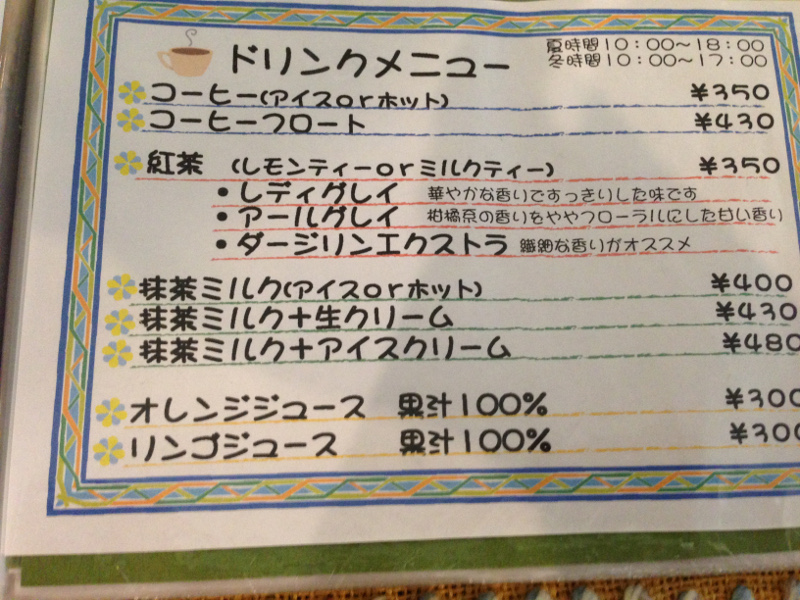 ドリンクメニュー
夏時間10:00〜18:00
冬時間10:00〜17:00
コーヒー(アイスorホット) ¥350
コーヒーフロート ¥430
紅茶 (レモンティーorミルクティー) ¥350
・レディグレイ 華やかな香りですっきりした味です
・アールグレイ 柑橘系の香りをややフローラルにした甘い香り
・ダージリンエクストラ 繊細な香りがオススメ
抹茶ミルク(アイスorホット) ¥400
抹茶ミルク+生クリーム ¥430
抹茶ミルク+アイスクリーム ¥480
オレンジジュース 果汁100% ¥300
リンゴジュース 果汁100% ¥300